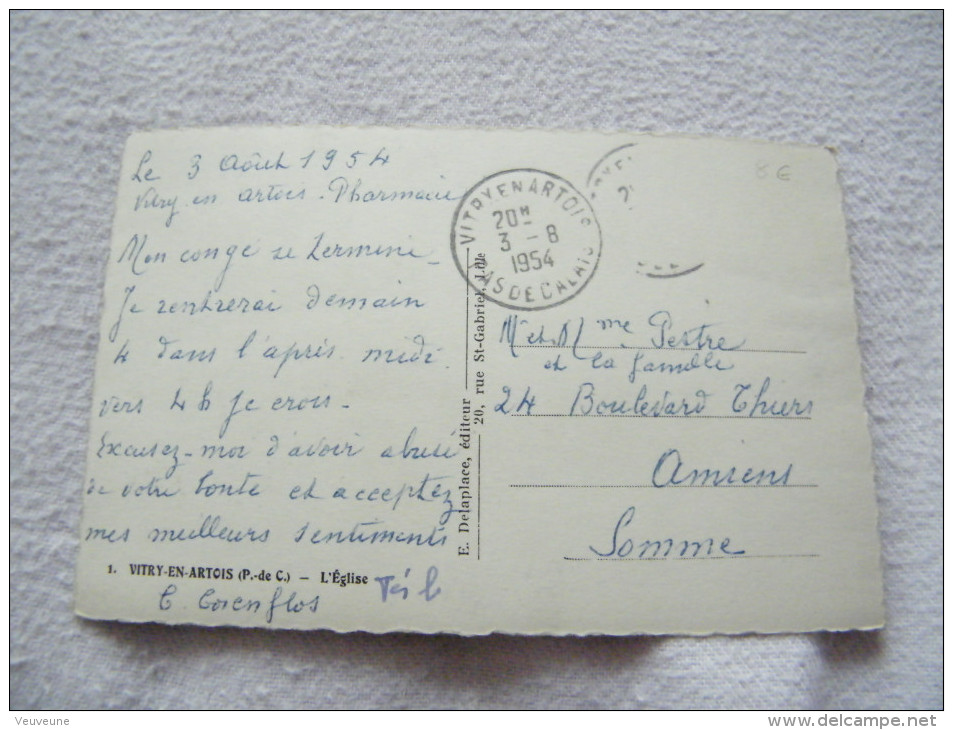 Le 3 Août 1954
Vitry en artois. Pharmacie
Mon congé se termine
Je rentrerai demain
4 dans l'après midi
vers 4 h je crois
Excusez-moi d'avoir abusé
de votre bonté et acceptez
mes meilleurs sentiments
1. VITRY-EN-ARTOIS (P.-de C.) — L'Église
E. Delaplace, éditeur
20, rue St-Gabriel, Lille
VITRY EN ARTOIS
20H
3 - 8
1954
PAS DE CALAIS
8€
Mr et Mme Pestre
et la famille
24 Boulevard Thiers
Amiens
Somme
Veuveune
delcampe.net